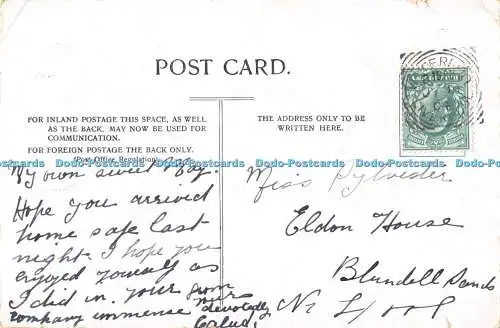 POST CARD.
FOR INLAND POSTAGE THIS SPACE, AS WELL
AS THE BACK, MAY NOW BE USED FOR
COMMUNICATION.
FOR FOREIGN POSTAGE THE BACK ONLY.
(Post Office Regulation).
THE ADDRESS ONLY TO BE
WRITTEN HERE.
My own sweet
Hope you arrived
home safe last
night. I hope you
enjoyed yourself as
I did in your
company immense devotedly
Miss
Eldon House
Blundell Sands
Nr L'pool
Dodo-Postcards Dodo-Postcards Dodo-Postcards Dodo-Postcards Dodo-Postcards